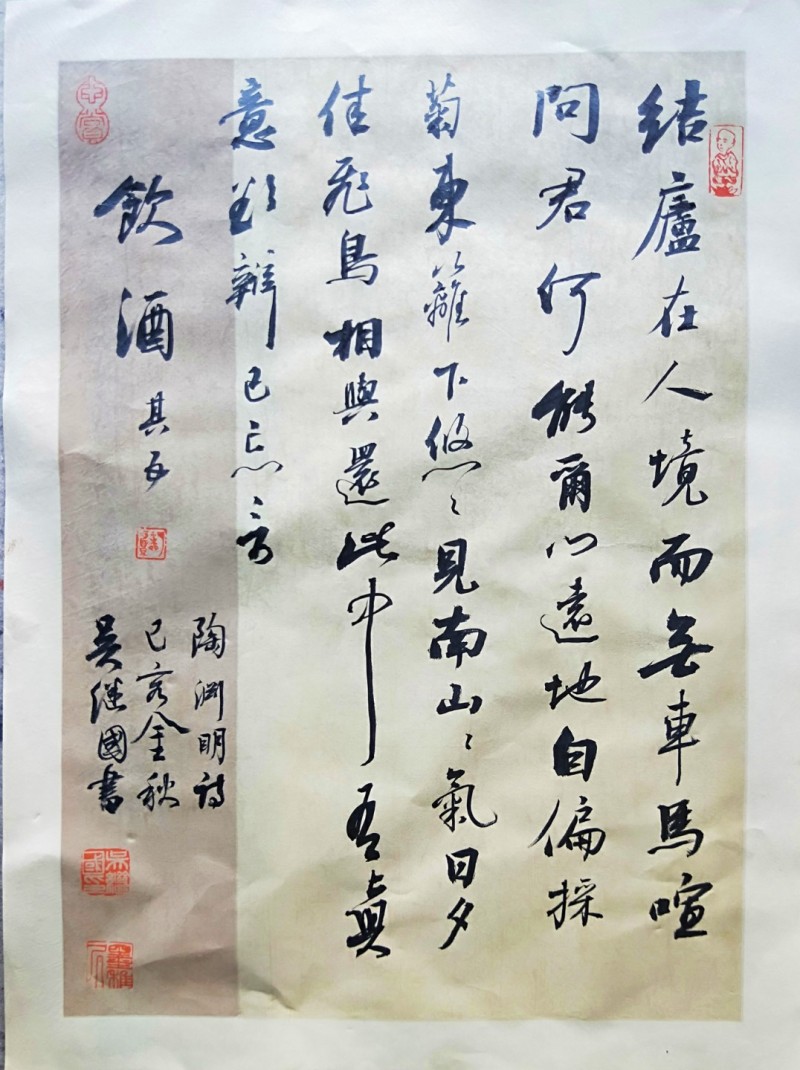 结廬在人境而無車馬喧
问君何能爾心遠地自偏採
菊東籬下悠〻見南山〻氣日夕
佳飛鳥相與還此中有真
意欲辨已忘言
飲酒 其五
陶渊明诗
己亥金秋
吴继國書